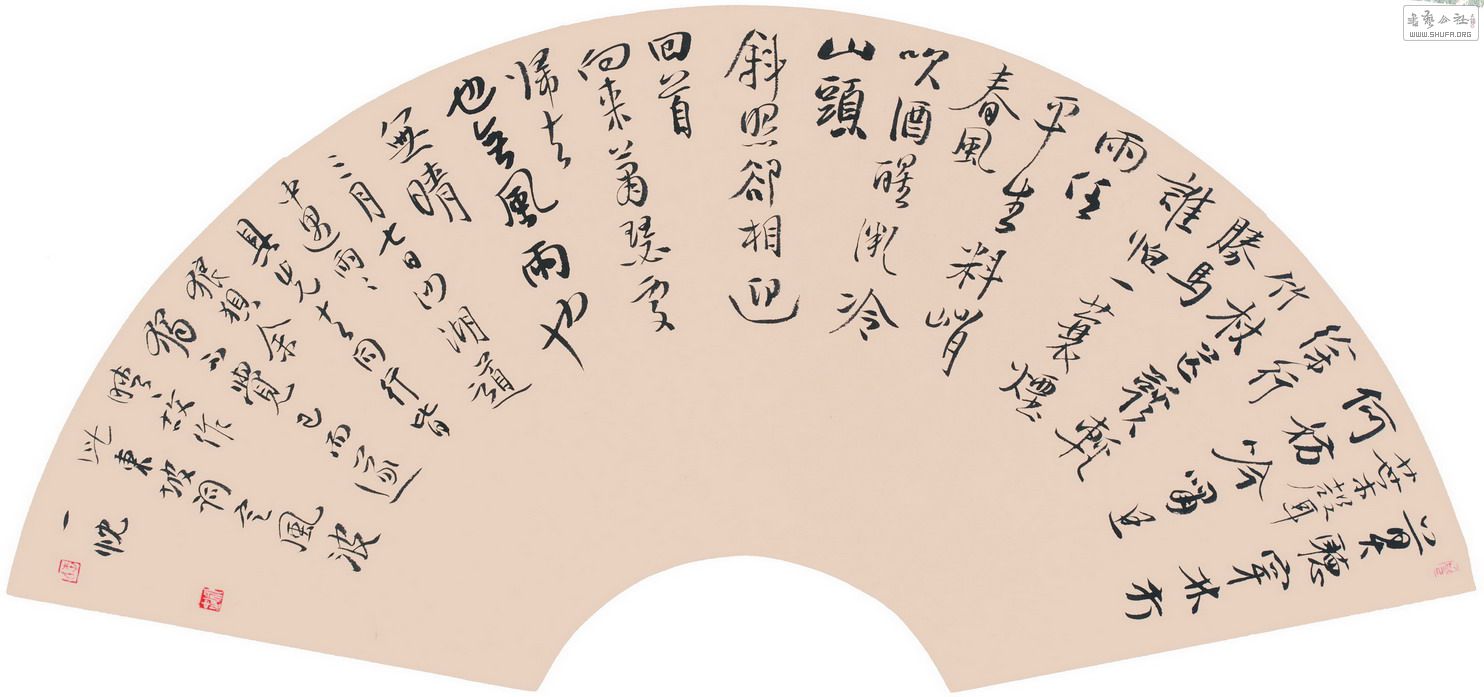 莫聽穿林打
葉聲
何妨吟嘯且
徐行
竹杖芒鞋輕
勝馬
誰怕一蓑煙
雨任
平生料峭
春風
吹酒醒微冷
山頭
斜照卻相迎
回首
向來蕭瑟處
歸去
也無風雨也
無晴
三月七日沙湖道
中遇雨々
具先去同行皆
狼狽余
獨不覺已而遂
晴故作
此東坡詞定風波
一忱
書藝公社
WWW.SHUFA.ORG